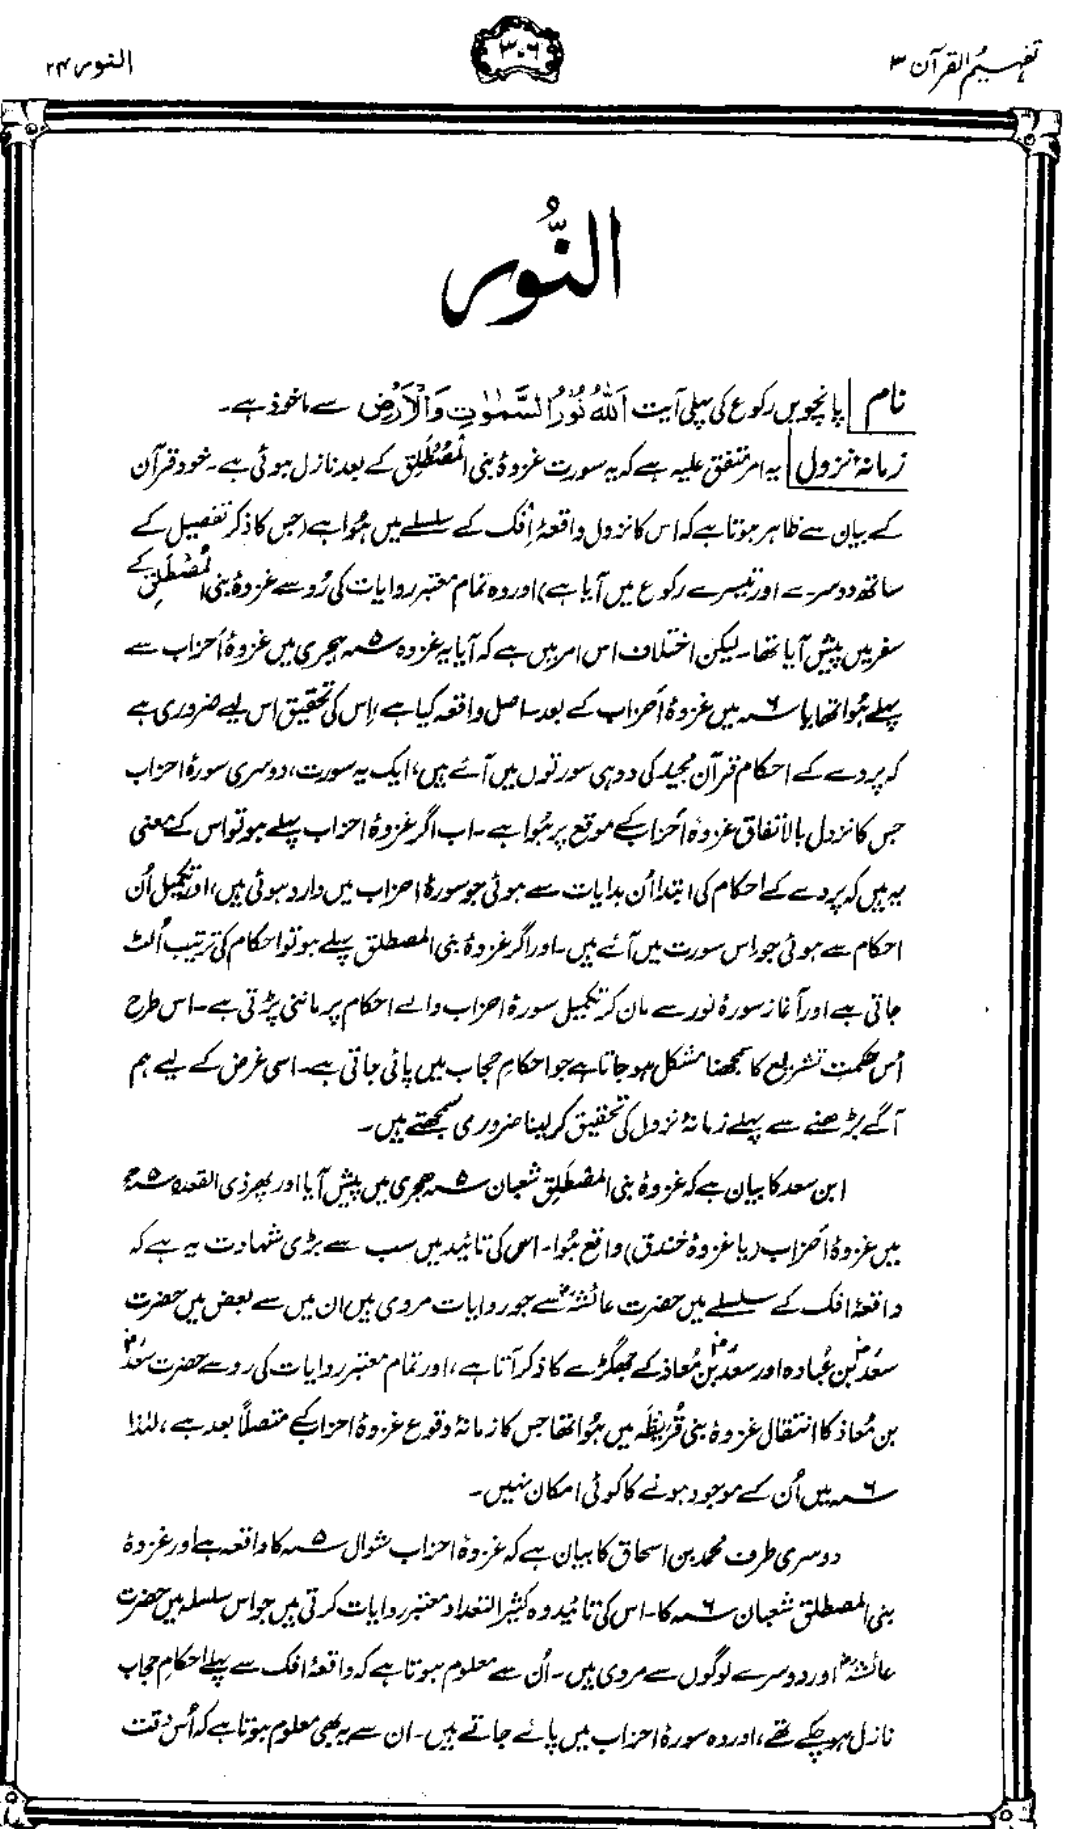 تفہیم القرآن ۳
۳۰۶
النور ۲۴
النُّور
نام | پانچویں رکوع کی پہلی آیت اَللّٰهُ نُوْرُ السَّمٰوٰتِ وَالْاَرْضِ سے ماخوذ ہے۔
زمانۂ نزول | یہ امر متفق علیہ ہے کہ یہ سورت غزوۂ بنی المُصْطَلِق کے بعد نازل ہوئی ہے۔ خود قرآن
کے بیان سے ظاہر ہوتا ہے کہ اس کا نزول واقعۂ اِفک کے سلسلے میں ہُوا ہے (جس کا ذکر تفصیل کے
ساتھ دوسرے اور تیسرے رکوع میں آیا ہے) اور وہ تمام معتبر روایات کی رُو سے غزوۂ بنی المُصْطَلِق کے
سفر میں پیش آیا تھا۔ لیکن اختلاف اس امر میں ہے کہ آیا یہ غزوہ ۵؁ ہجری میں غزوۂ اَحزاب سے
پہلے ہُوا تھا یا ۶؁ میں غزوۂ اَحزاب کے بعد۔ اصل واقعہ کیا ہے، اِس کی تحقیق اس لیے ضروری ہے
کہ پردے کے احکام قرآن مجید کی دو ہی سورتوں میں آئے ہیں، ایک یہ سورت، دوسری سورۂ احزاب
جس کا نزول بالاتفاق غزوۂ اَحزاب کے موقع پر ہُوا ہے۔ اب اگر غزوۂ احزاب پہلے ہو تو اس کے معنی
یہ ہیں کہ پردے کے احکام کی ابتدا اُن ہدایات سے ہوئی جو سورۂ احزاب میں وارد ہوئی ہیں، اور تکمیل اُن
احکام سے ہوئی جو اس سورت میں آئے ہیں۔ اور اگر غزوۂ بنی المصطلق پہلے ہو تو احکام کی ترتیب اُلٹ
جاتی ہے اور آغاز سورۂ نور سے مان کر تکمیل سورۂ احزاب والے احکام پر ماننی پڑتی ہے۔ اس طرح
اُس حکمتِ تشریع کا سمجھنا مشکل ہو جاتا ہے جو احکامِ حجاب میں پائی جاتی ہے۔ اسی غرض کے لیے ہم
آگے بڑھنے سے پہلے زمانۂ نزول کی تحقیق کر لینا ضروری سمجھتے ہیں۔
ابن سعد کا بیان ہے کہ غزوۂ بنی المُصْطَلِق شعبان ۵؁ ہجری میں پیش آیا اور پھر ذی القعدہ ۵؁ ھ
میں غزوۂ اَحزاب (یا غزوۂ خندق) واقع ہُوا۔ اس کی تائید میں سب سے بڑی شہادت یہ ہے کہ
واقعۂ افک کے سلسلے میں حضرت عائشہؓ سے جو روایات مروی ہیں ان میں سے بعض میں حضرت
سعدؓ بن عُبادہ اور سعدؓ بن مُعاذ کے جھگڑے کا ذکر آتا ہے، اور تمام معتبر روایات کی رو سے حضرت سعدؓ
بن مُعاذ کا انتقال غزوۂ بنی قُرَیظَہ میں ہُوا تھا جس کا زمانۂ وقوع غزوۂ احزاب کے متصلاً بعد ہے، لہٰذا
۶؁ میں اُن کے موجود ہونے کا کوئی امکان نہیں۔
دوسری طرف محمد بن اسحاق کا بیان ہے کہ غزوۂ احزاب شوال ۵؁ کا واقعہ ہے اور غزوۂ
بنی المصطلق شعبان ۶؁ کا۔ اس کی تائید وہ کثیر التعداد معتبر روایات کرتی ہیں جو اس سلسلہ میں حضرت
عائشہؓ اور دوسرے لوگوں سے مروی ہیں۔ اُن سے معلوم ہوتا ہے کہ واقعۂ افک سے پہلے احکامِ حجاب
نازل ہو چکے تھے، اور وہ سورۂ احزاب میں پائے جاتے ہیں۔ ان سے یہ بھی معلوم ہوتا ہے کہ اُس وقت